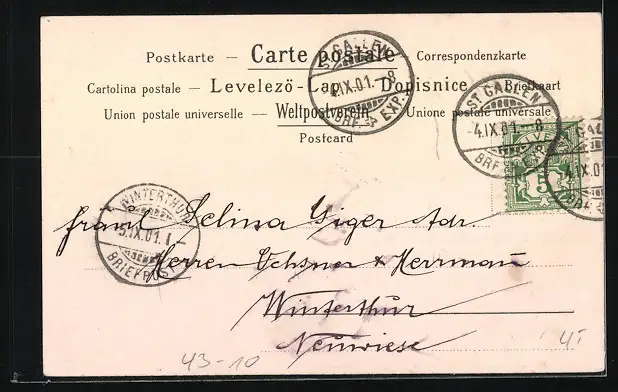 Postkarte — Carte postale — Correspondenzkarte
Cartolina postale — Levelező-Lap — Dopisnice — Briefkaart
Union postale universelle — Weltpostverein — Unione postale universale
Postcard
ST. GALLEN
4.IX.01.-8
BRF. EXP.
ST. GALLEN
-4.IX.01.-8
BRF. EXP.
4.IX.01
5
WINTERTHUR
-5.IX.01.I-
BRIEFPOST
Selina Giger Adr.
Herren Ochsner & Herrmann
Winterthur
Neuwiese
43-10